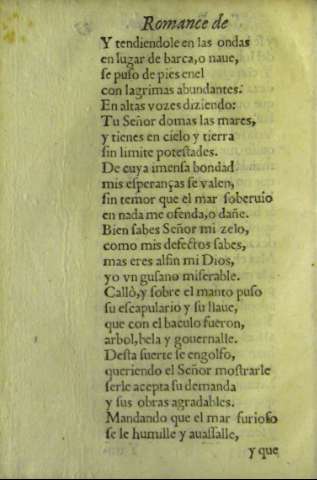 Romance de
Y tendiendole en las ondas
en lugar de barca,o naue,
se puso de pies enel
con lagrimas abundantes.
En altas vozes diziendo:
Tu Señor domas las mares,
y tienes en cielo y tierra
sin limite potestades.
De cuya imensa bondad
mis esperanças se valen,
sin temor que el mar soberuio
en nada me ofenda,o dañe.
Bien sabes Señor mi zelo,
como mis defectos sabes,
mas eres alfin mi Dios,
yo vn gusano miserable.
Callò,y sobre el manto puso
su escapulario y su llaue,
que con el baculo fueron,
arbol,bela y gouernalle.
Desta suerte se engolfo,
queriendo el Señor mostrarle
serle acepta su demanda
y sus obras agradables.
Mandando que el mar furioso
se le humille y auassalle,
y que